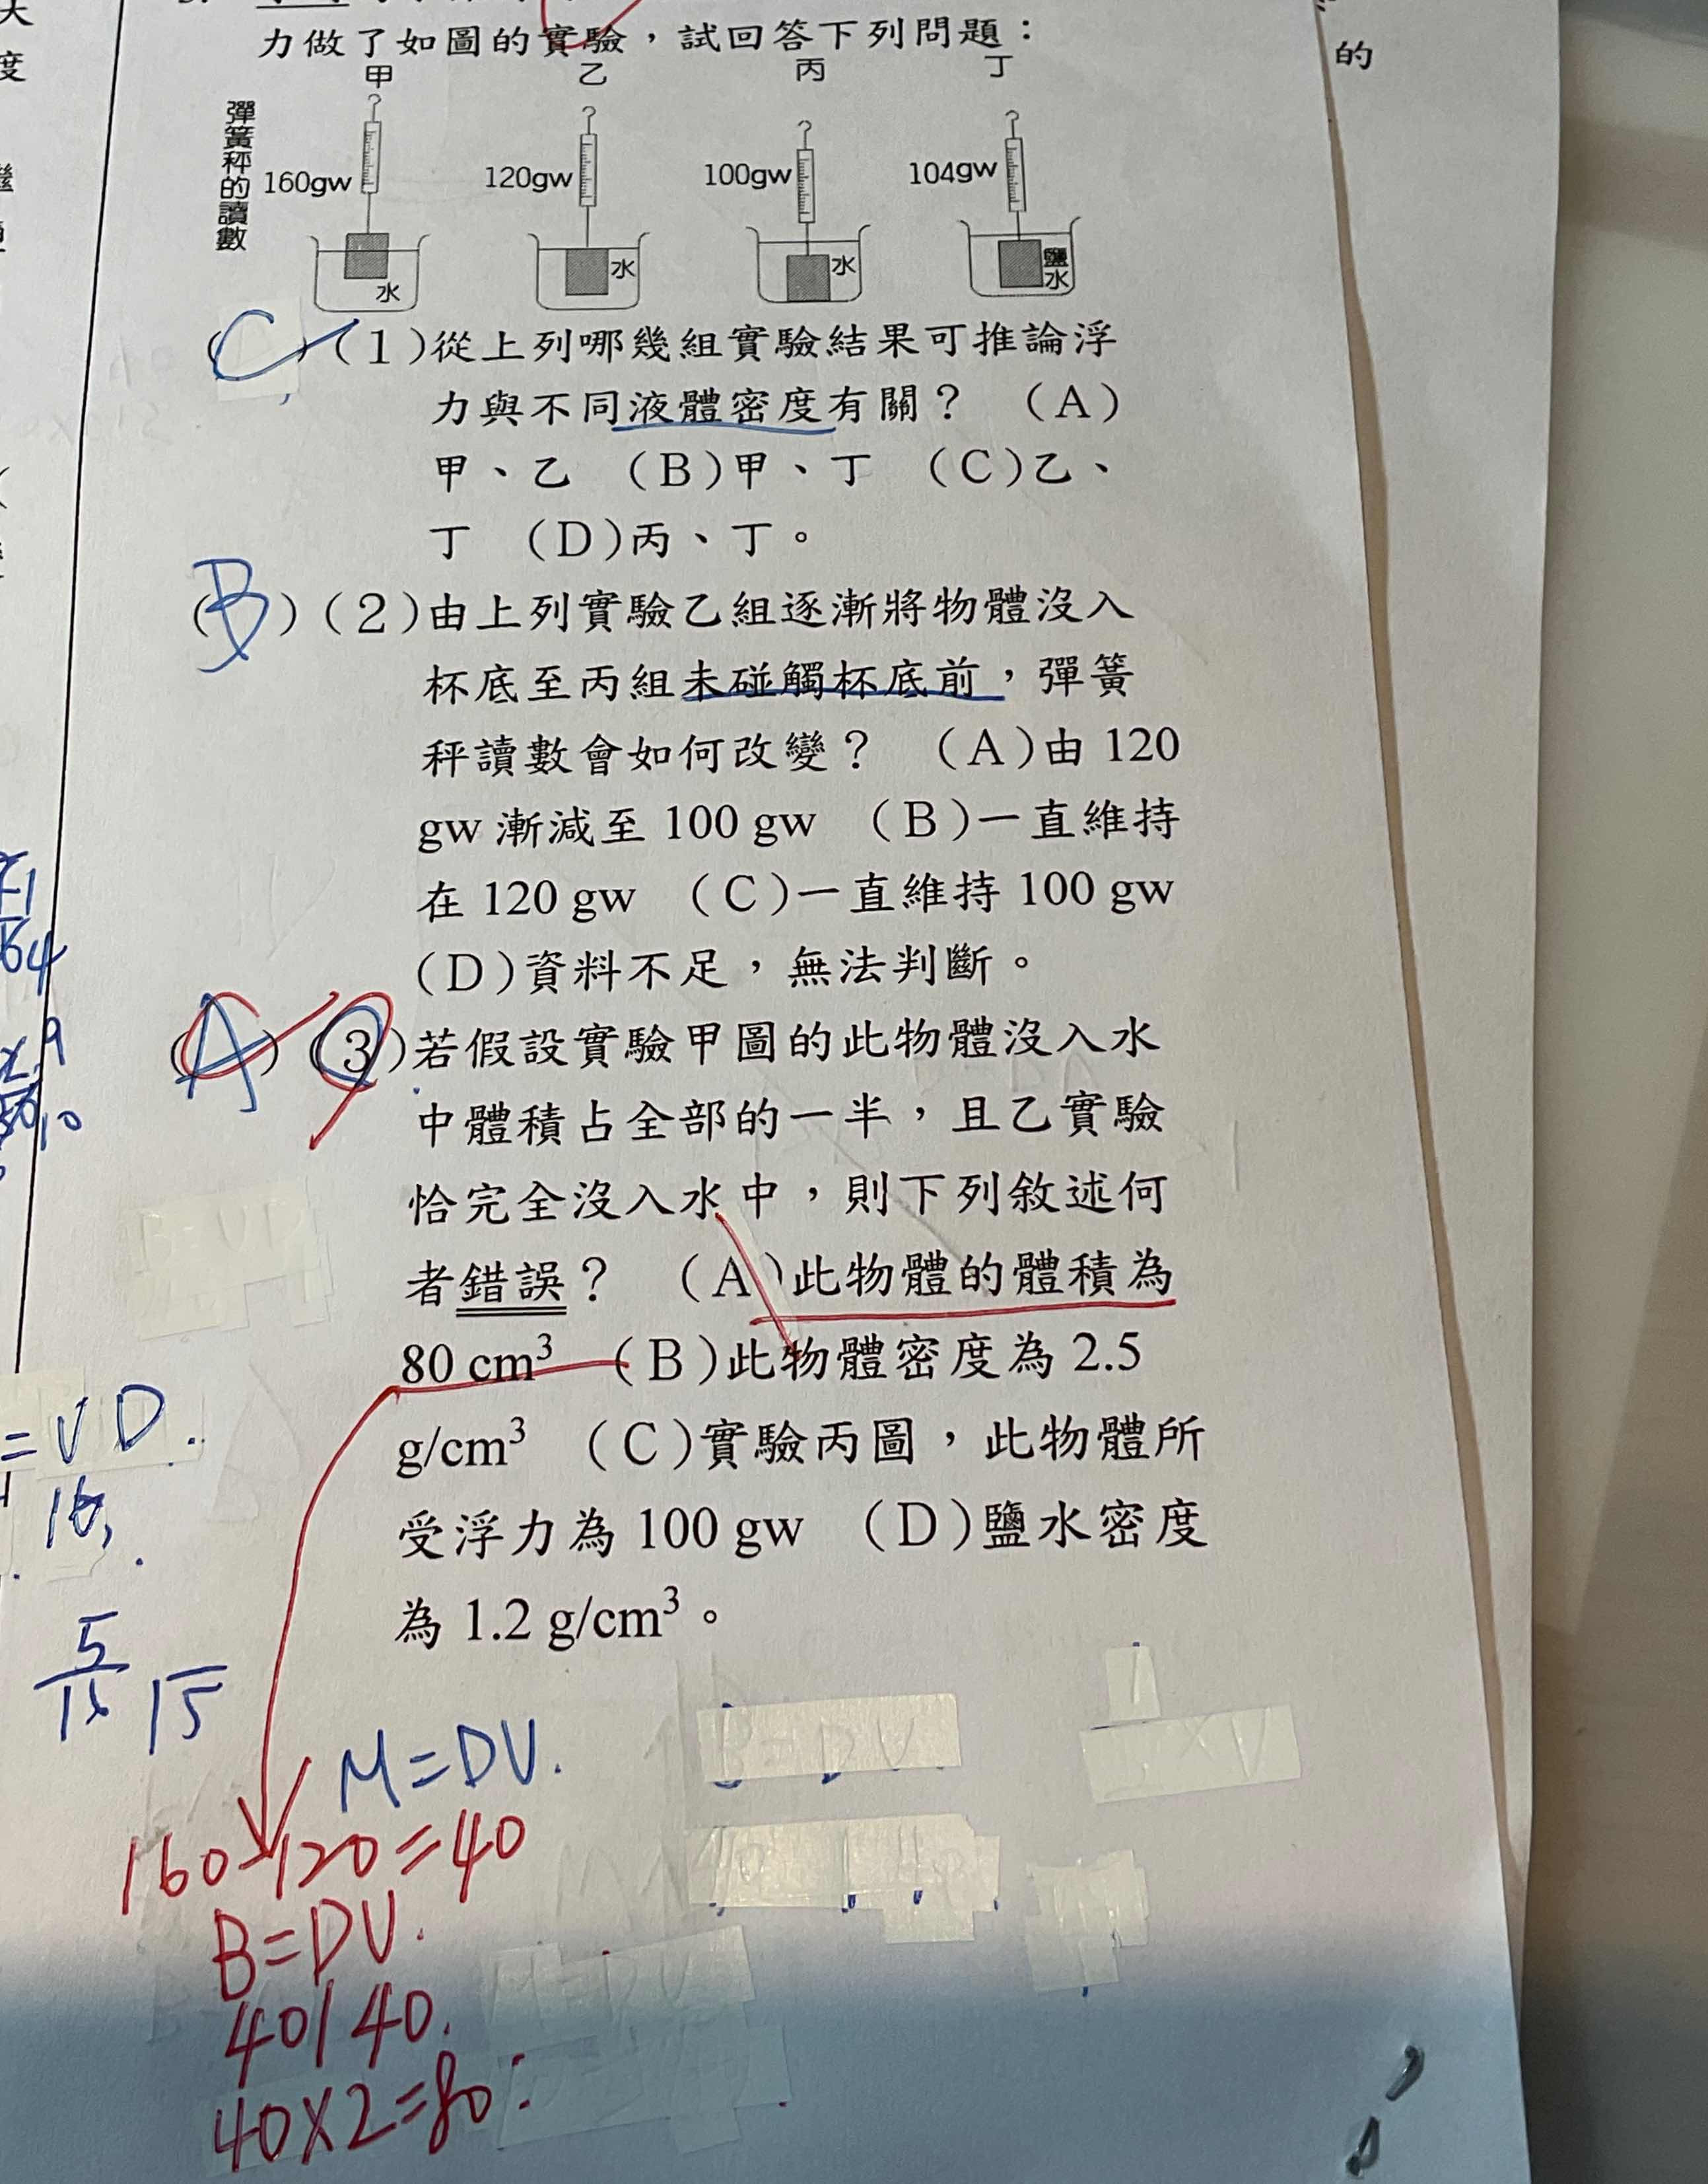 力做了如圖的實驗，試回答下列問題：
甲 乙 丙 丁
彈簧秤的讀數
160gw 120gw 100gw 104gw
水 水 水 鹽水
(C)(1)從上列哪幾組實驗結果可推論浮
力與不同液體密度有關？ (A)
甲、乙 (B)甲、丁 (C)乙、
丁 (D)丙、丁。
(B)(2)由上列實驗乙組逐漸將物體沒入
杯底至丙組未碰觸杯底前，彈簧
秤讀數會如何改變？ (A)由 120
gw 漸減至 100 gw (B)一直維持
在 120 gw (C)一直維持 100 gw
(D)資料不足，無法判斷。
(A)(3)若假設實驗甲圖的此物體沒入水
中體積占全部的一半，且乙實驗
恰完全沒入水中，則下列敘述何
者錯誤？ (A)此物體的體積為
80 cm³ (B)此物體密度為 2.5
g/cm³ (C)實驗丙圖，此物體所
受浮力為 100 gw (D)鹽水密度
為 1.2 g/cm³。
M=DV.
160-120=40
B=DV.
40/40.
40×2=80
=VD.
16
5
15
的
度